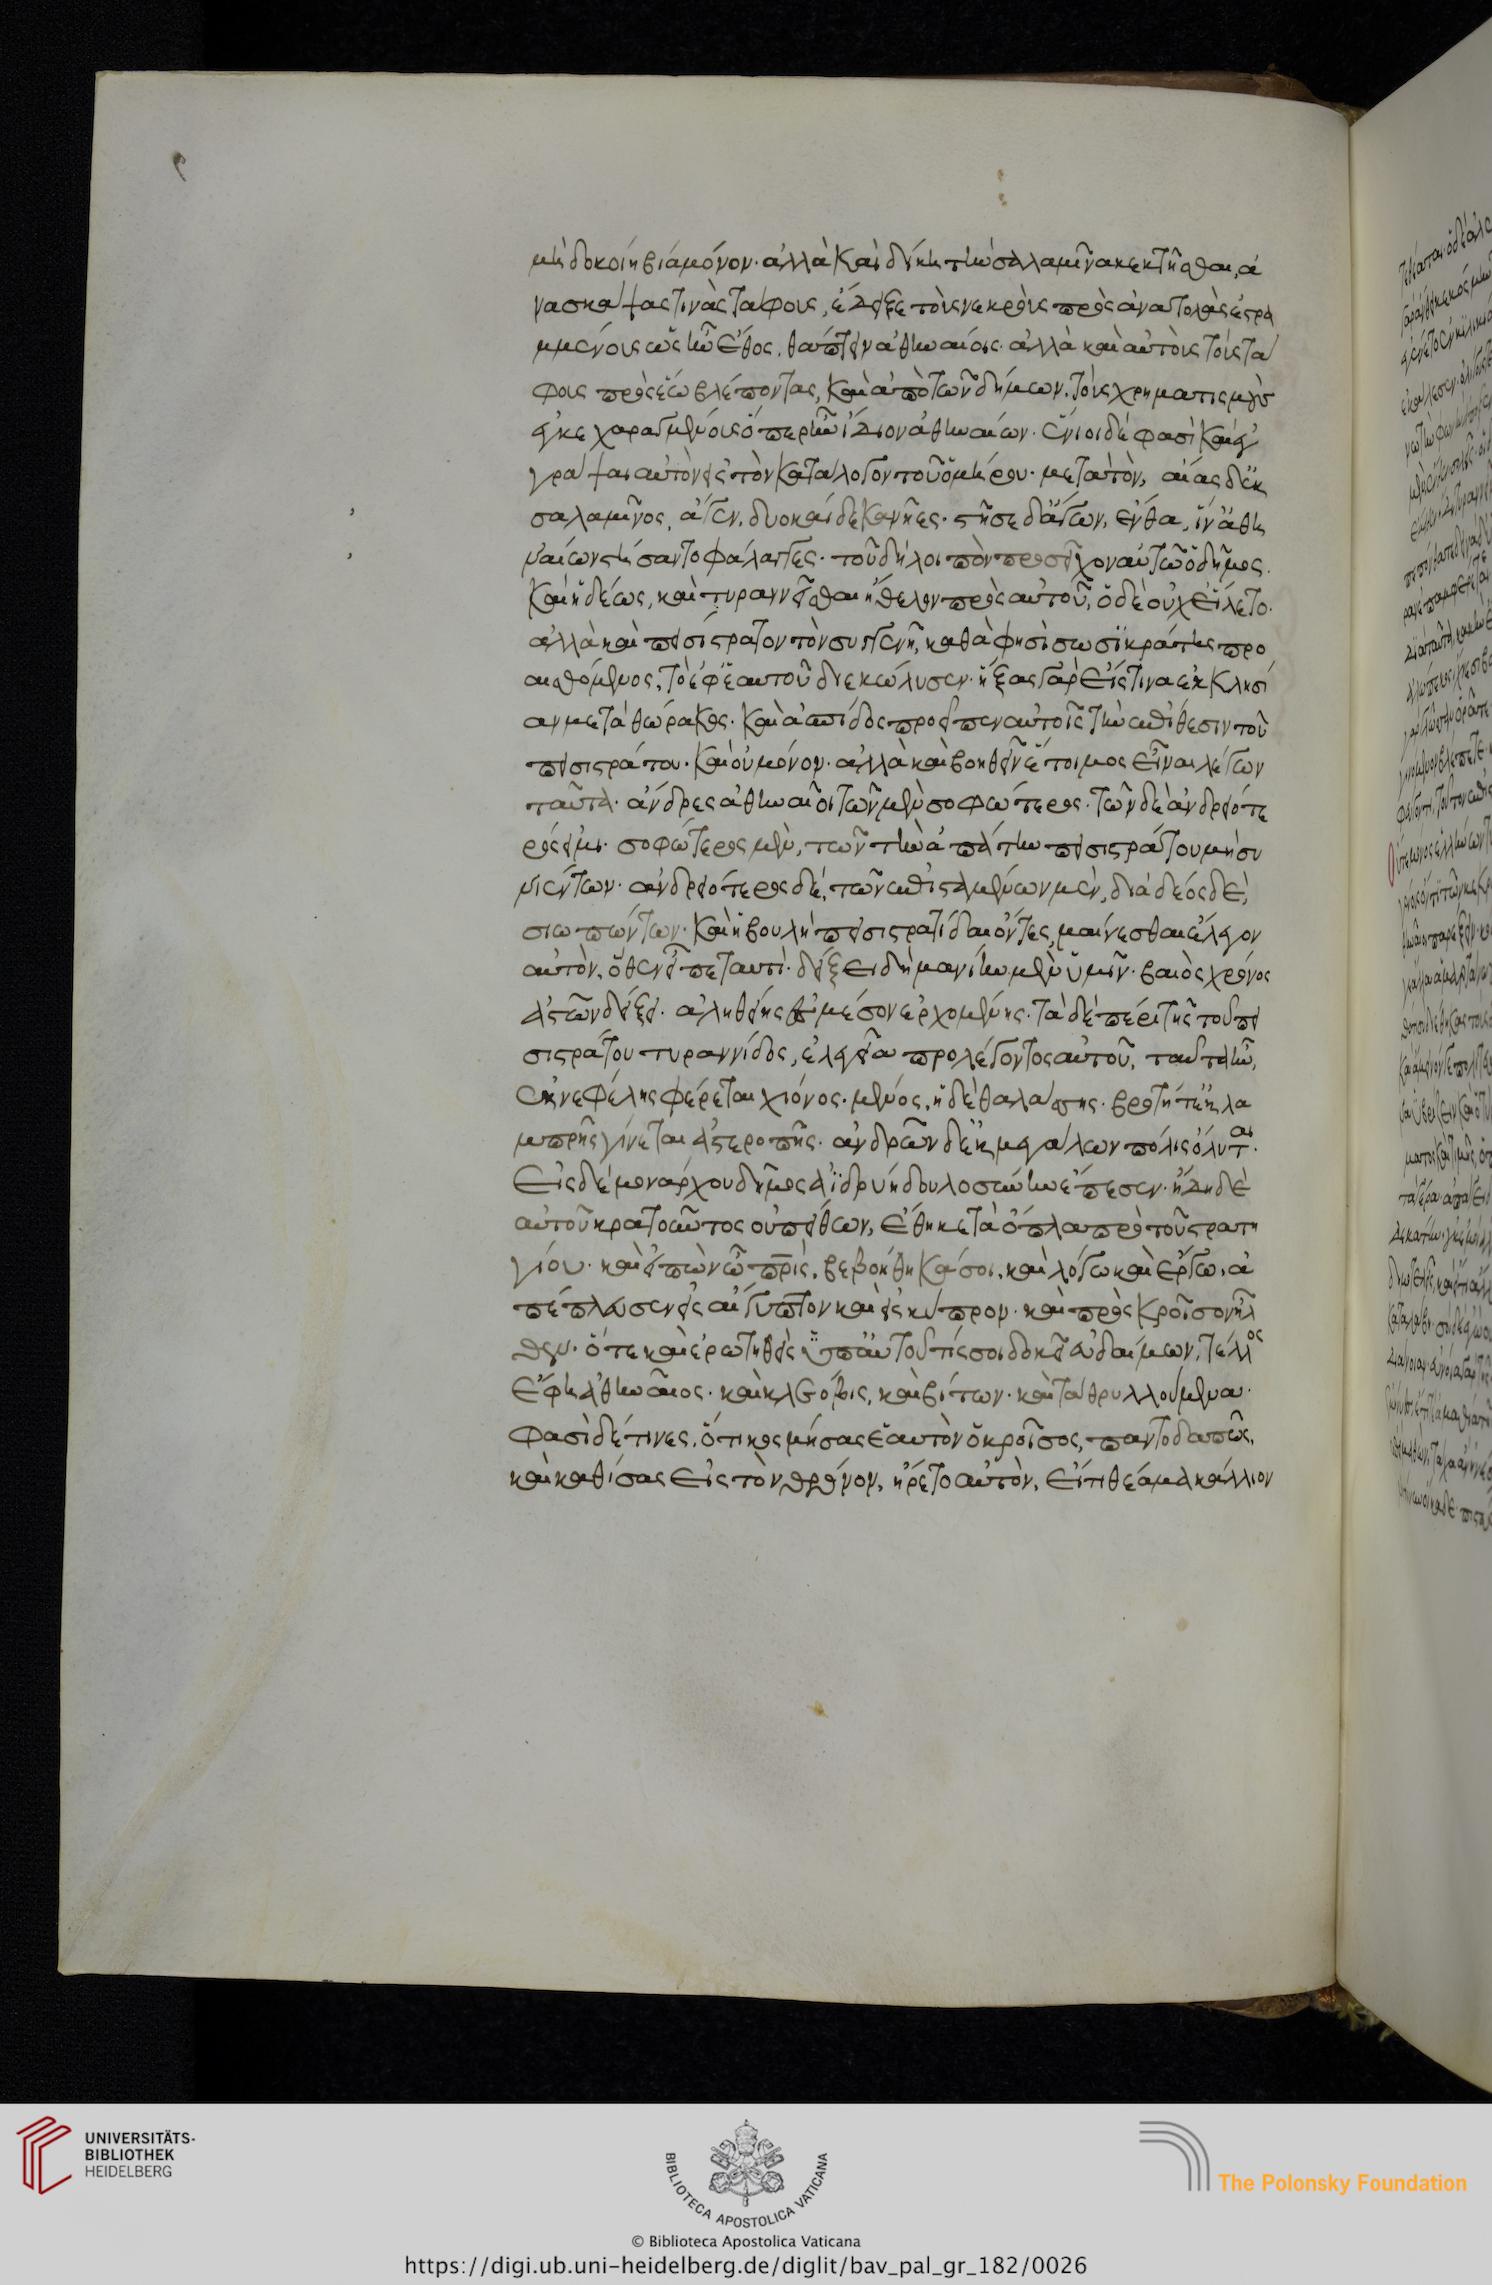 μὴ δοκοίη βία μόνον· ἀλλὰ καὶ δίκη τὴν σαλαμῖνα κεκτῆσθαι, ἀ
νασκάψας τινὰς τάφους, ἔδειξε τοὺς νεκροὺς πρὸς ἀνατολὰς ἐστρα
μμένους ὡς ἦν ἔθος θάπτειν ἀθηναίοις· ἀλλὰ καὶ αὐτοὺς τοὺς τά
φους πρὸς ἕω βλέποντας, καὶ ἀπὸ τῶν δήμων τοὺς χρηματισμοὺς
ἐγκεχαραγμένους ὅπερ ἦν ἴδιον ἀθηναίων· ἔνιοι δέ φασι καὶ ἐγ
γράψαι αὐτὸν εἰς τὸν κατάλογον τοῦ ὁμήρου· μετὰ τὸν, αἴας δ' ἐκ
σαλαμῖνος, ἄγεν δυοκαίδεκα νῆες· στῆσε δ' ἄγων, ἔνθα, ἵν' ἀθη
ναίων ἵσαντο φάλαγγες· τοῦ δὴ λοιπὸν προσεῖχον αὐτῶ ὁ δῆμος·
καὶ ἡδέως, καὶ τυραννεῖσθαι ἤθελον πρὸς αὐτοῦ, ὁ δὲ οὐχ εἵλετο·
ἀλλὰ καὶ πεισίστρατον τὸν συγγενῆ, καθὰ φησὶ σωσικράτης προ
αισθόμενος, τὸ ἐφ' ἑαυτοῦ διεκώλυσεν· ἤξας γὰρ εἰς τινα ἐκκλησί
αν μετὰ θώρακος· καὶ ἀσπίδος προεῖπεν αὐτοῖς τὴν ἐπίθεσιν τοῦ
πεισιστράτου· καὶ οὐ μόνον· ἀλλὰ καὶ βοηθεῖν ἕτοιμος εἶναι λέγων
ταῦτα· ἄνδρες ἀθηναῖοι τῶν μὲν σοφώτερος· τῶν δὲ ἀνδρειότε
ρός εἰμι· σοφώτερος μὲν, τῶν τὴν ἀπάτην πεισιστράτου μὴ συ
νιέντων· ἀνδρειότερος δέ, τῶν ἐπισταμένων μὲν, διὰ δέος δὲ,
σιωπώντων· καὶ ἡ βουλὴ πεισιστρατίδαι ὄντες, μαίνεσθαι ἔλεγον
αὐτὸν, ὅθεν εἶπε ταυτί· δείξει δὴ μανίην μὲν ὑμῖν· βαιὸς χρόνος
ἀστῶν δείξει· ἀληθείης ἐς μέσον ἐρχομένης· τὰ δὲ περὶ τῆς τοῦ πει
σιστράτου τυραννίδος, ἐλεγεῖα προλέγοντος αὐτοῦ, ταῦτα ἦν,
ἐκ νεφέλης φέρεται χιόνος· μένος, ἠδὲ θαλάσσης· βροτὴ τ' ἐκ λα
μπρῆς γίνεται ἀστεροπῆς· ἀνδρῶν δ' ἐκ μεγάλων πόλις ὄλυται·
εἰς δὲ μονάρχου δῆμος ἀϊδριη δουλοσύνην ἔπεσεν· ἤδη δὲ
αὐτοῦ κρατοῦντος οὐ πείθων, ἔθηκε τὰ ὅπλα πρὸ τοῦ στρατη
γίου· καὶ εἰπὼν ὦ πρὶς, βεβοήθηκά σοι, καὶ λόγω καὶ ἔργω, ἀ
πέπλευσεν εἰς αἴγυπτον καὶ εἰς κύπρον· καὶ πρὸς κροῖσον ἦλ
θεν· ὅτε καὶ ἐρωτηθεὶς ὑπ' αὐτοῦ τίς σοι δοκεῖ εὐδαίμων, τέλλος
ἔφη ἀθηναῖος· καὶ κλέοβις, καὶ βίτων· καὶ τὰ θρυλλούμενα·
φασὶ δέ τινες, ὅτι κοσμήσας ἑαυτὸν ὁ κροῖσος, παντοδαπῶς,
καὶ καθίσας εἰς τὸν θρόνον, ἤρετο αὐτὸν, εἴ τι θέαμα κάλλιον
UNIVERSITÄTS-
BIBLIOTHEK
HEIDELBERG
BIBLIOTECA APOSTOLICA VATICANA
The Polonsky Foundation
© Biblioteca Apostolica Vaticana
https://digi.ub.uni-heidelberg.de/diglit/bav_pal_gr_182/0026